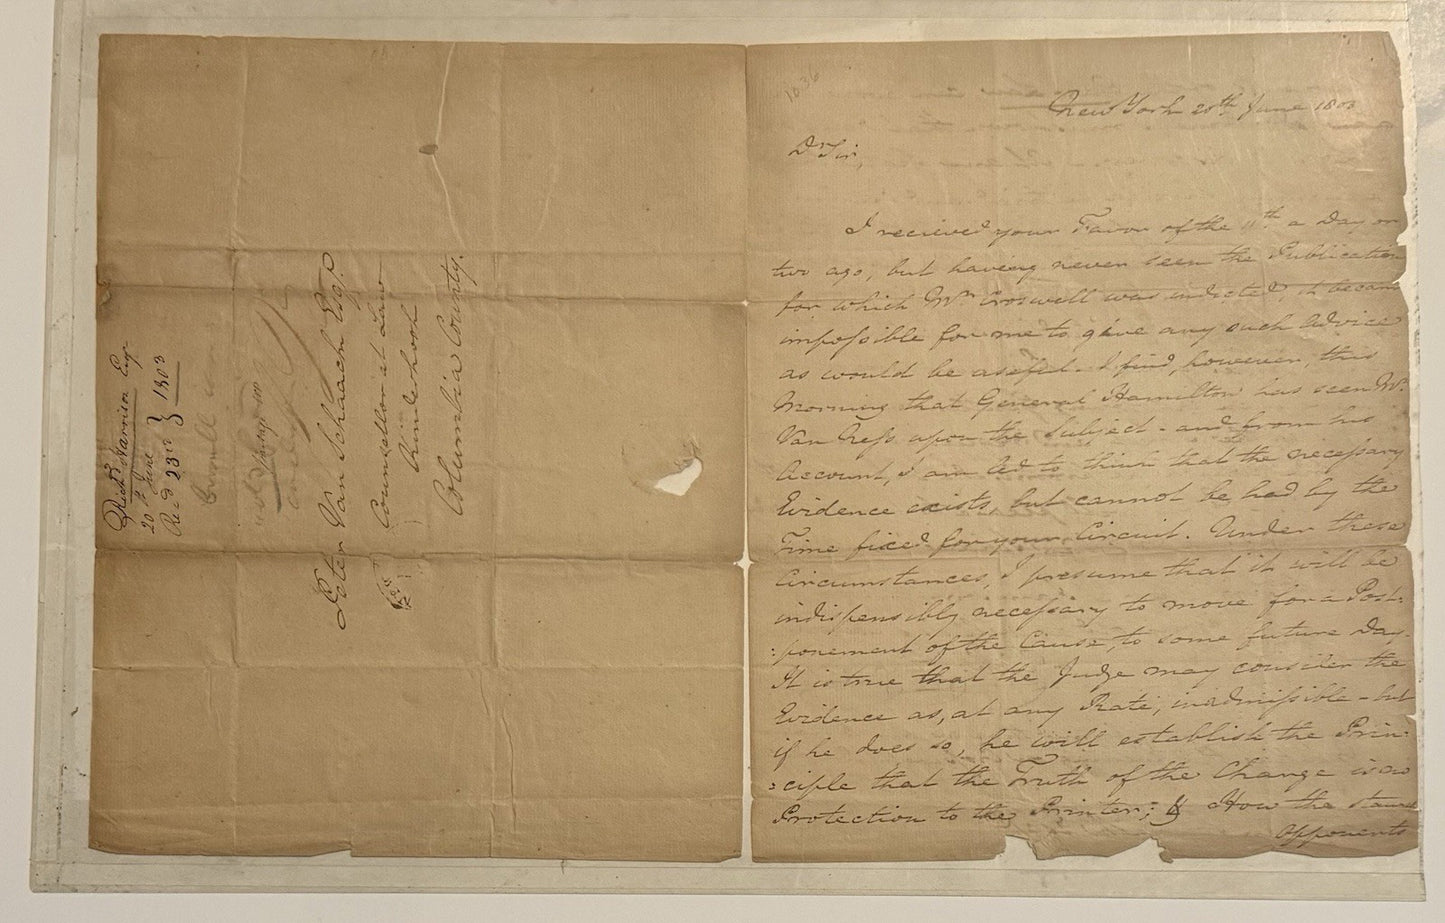 Rich.d Harrison Esqr
20th June 1803
Rec.d 23rd
Peter Van Schaack Esqr.
Counsellor at Law
Kinderhook
Columbia County.
1036
New York 20th June 1803
Dr Sir,
I recieved your Favor of the 11th a Day or
two ago, but having never seen the Publication
for which Mr Croswell was indicted, it became
impossible for me to give any such Advice
as would be useful. I find, however, this
Morning that General Hamilton has seen Mr.
Van Ness upon the Subject - and from his
Account, I am led to think that the necessary
Evidence exists, but cannot be had by the
Time fixed for your Circuit. Under these
Circumstances, I presume that it will be
indispensibly necessary to move for a Post:
:ponement of the Cause, to some future Day.
It is true that the Judge may consider the
Evidence as, at any Rate, inadmissible - but
if he does so, he will establish the Prin:
:ciple that the Truth of the Charge is no
Protection to the Printer; How the
opponents